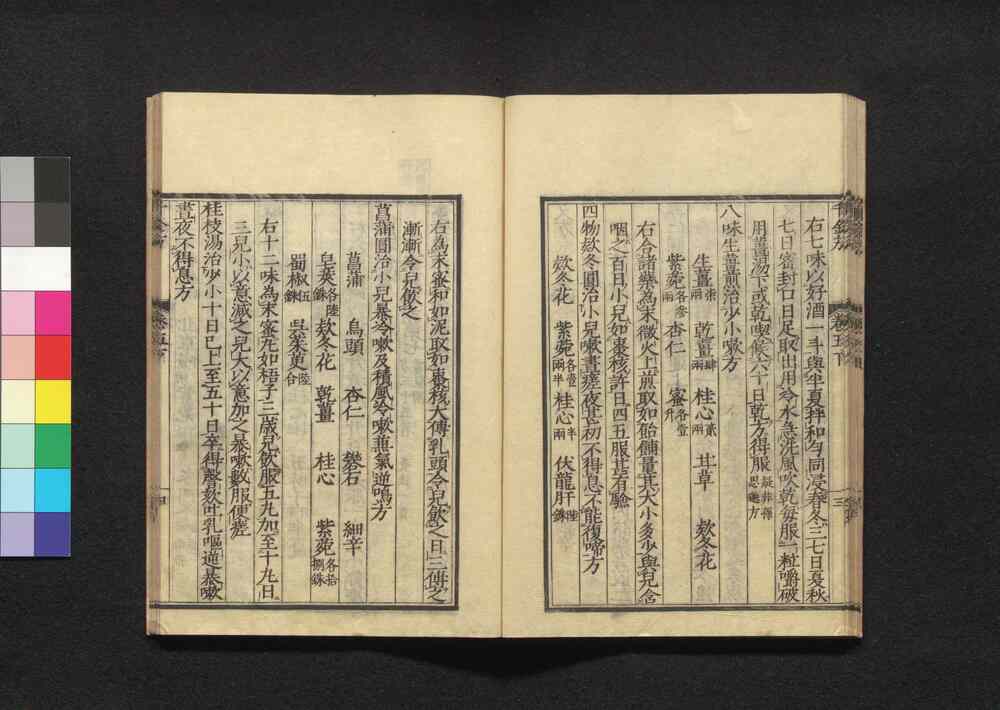 右七味以好酒一斗與半夏拌和勻同浸春冬三七日夏秋
七日密封口日足取出用冷水急洗風吹乾每服一粒嚼破
用薑湯下或乾喫候六十日乾方得服疑非孫思邈方
八味生薑煎治少小嗽方
生薑柒兩 乾薑肆兩 桂心貳兩 甘草 款冬花
紫菀各參兩 杏仁 蜜各壹升
右合諸藥為末微火上煎取如飴餔量其大小多少與兒含
咽之百日小兒如棗核許日四五服甚有驗
四物款冬圓治小兒嗽晝瘥夜甚初不得息不能復啼方
款冬花 紫菀各壹兩半 桂心半兩 伏龍肝陸銖
右為末蜜和如泥取如棗核大傅乳頭令兒飲之日三傅之
漸漸令兒飲之
菖蒲圓治小兒暴冷嗽及積風冷嗽兼氣逆鳴方
菖蒲 烏頭 杏仁 礬石 細辛
皂莢各陸銖 款冬花 乾薑 桂心 紫菀各拾捌銖
蜀椒伍銖 吳茱萸陸合
右十二味為末蜜丸如梧子三歲兒飲服五丸加至十丸日
三兒小以意減之兒大以意加之暴嗽數服便瘥
桂枝湯治少小十日已上至五十日卒得謦欬吐乳嘔逆暴嗽
晝夜不得息方